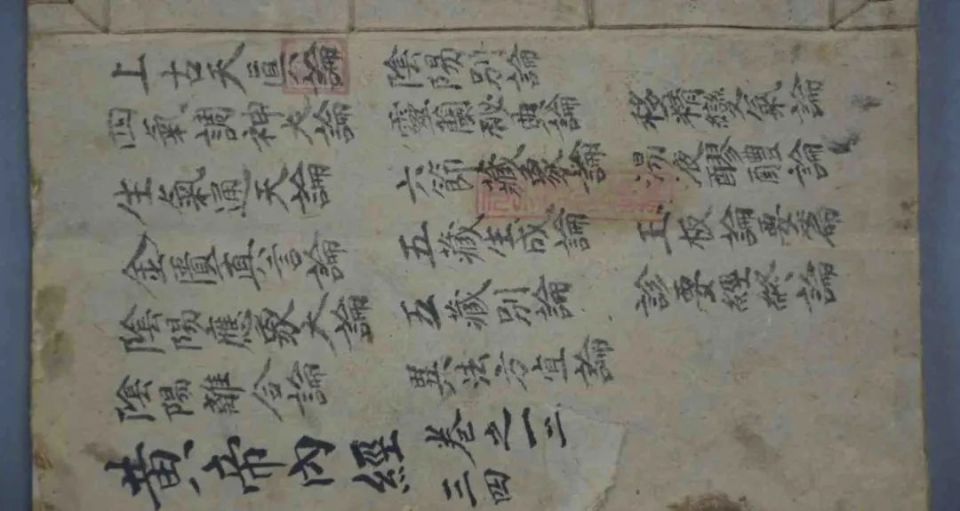 黃帝內經 卷之一二三四
上古天真論
四氣調神大論
生氣通天論
金匱真言論
陰陽應象大論
陰陽離合論
陰陽別論
靈蘭秘典論
六節藏象論
五藏生成論
五藏別論
異法方宜論
移精變氣論
湯液醪醴論
玉板論要篇
診要經終論